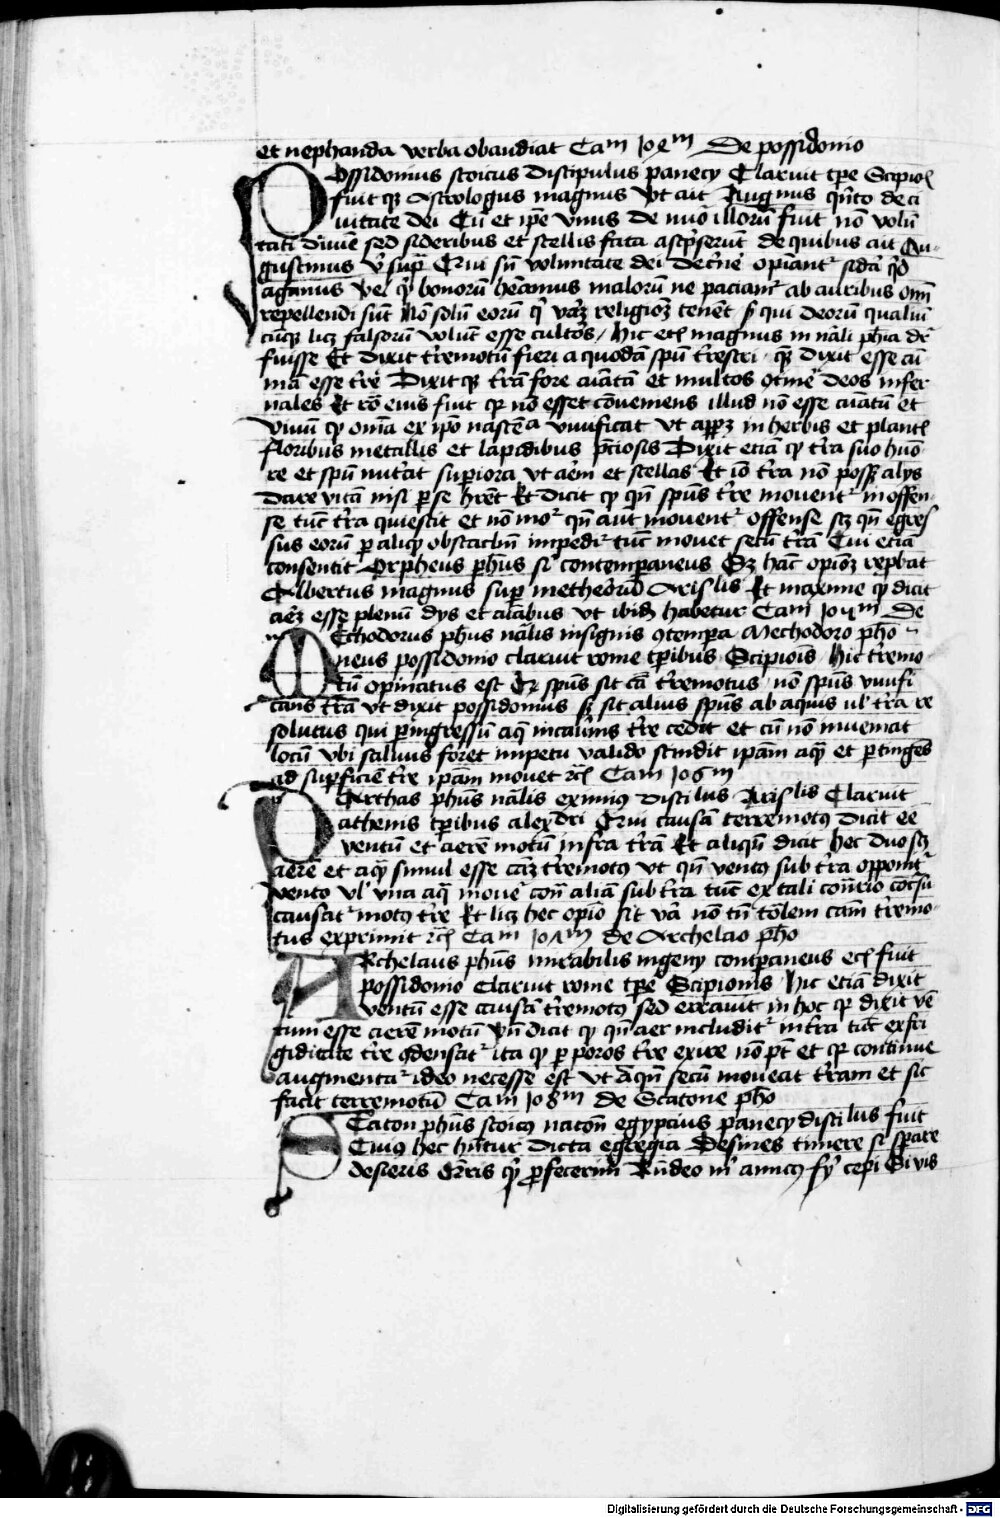 et nephanda verba obaudiat Cam 104m De possidonio
Possidonius stoicus discipulus panecy Claruit tpe Scipioī
fuit qz Astrologus magnus vt ait Augnus qnto de ci
uitate dei Cū et ipe vnus de nūo illorū fuit nō volū
tati diuīe sed sideribus et stellis fata ascpserūt de quibus ait Au
gustinus voluntate dei decrne opinant
agamus vel bonorū heamus malorū ne paciamr ab auribus oīm
repellendi sūt Nō solū eorū qui veā religiōz tenēt sz qui deorū qualiū
cūqz licz falsorū volūt esse cultōs Hic ecī magnus in nāli phīa dr
fuisse Et dixit tremotū fieri a quodā spū trestri qz dixit esse aī
mā esse tre Dixit qz trā fore aīatā et multos 9tīne deos infer
nales Et rō eius fuit qz nō esset cōueniens illud nō esse aīatū et
viuū qz oīa ex ipo nascēa viuificat vt appz in herbis et plantī
floribus metallis et lapidibus pciosis Dixit etiā qz tra suo huō
re et spū nutrit supiora vt aem et stellas Et iō tra nō posz alijs
dare vitā nisi p se hret Et dicit qz qn spūs tre mouentr inoffen
se tūc tra quiescit et nō mor qn aūt mouentr offense scz qn egres
sus eorū p aliqz obstaclm impedir tūc mouet secū trā Cui etiā
consentit Orpheus phus sī contempaneus Sz hāc opiōz repbat
Albertus magnus sup metheōrū Arislis Et maxime qz dicit
aez esse plenū dijs et aīabus vt ibidz habetur Cam 105m De
Echodorus phus nālis insignis 9tempa Mechodoro pho
neus possidonio claruit rome tpibus Scipiois Hic tremo
tū opinatus est Qz spūs sit cā tremotus nō spūs viuifi
cans trā vt dixit possidonius sz sit alius spūs ab aquis ul tra re
solutus qui p ingressū aqz in cauernis tre cedit et cū nō inueniat
locū vbi saluus foret impetu valido scindit ipām aqz et ptingēs
ad supficiē tre ipām mouet rcī Cam 106m
Arthas phus nālis eximius discilus Arislis Claruit
athenis tpibus alexdri Qui causā terremotus dicit ee
ventū et aerē motū infra trā Et aliqn dicit hec duo scz
aerē et aqz simul esse cāz tremotus vt qn ventus sub tra opponitr
vento vl vna aqz
causatr motus tre Et licz hec opio sit vā nō tn tōlem cam tremo
tus exprimit rcī Cam 107m de Archelao pho
Archelaus phus mirabilis ingenij contpaneus ecī fuit
possidonio Claruit rome tpe Scipionis Hic etiā dixit
ventū esse causā tremotus sed errauit in hoc qz dixit vē
tum esse aerē motū Vn dicit qz qn aer includitr infra trā ex fri
giditate tre 9densatr ita qz p poros tre exire nō pt et qz continue
augmentar ideo necesse est vt aliqn secū moueat tram et sic
facit terremotū Cam 108m de Scatone pho
Scaton phus stoicus natōn egyptius panecy discilus fuit
Cuius hec hntur dicta egregia Desines timere si sperare
desieris Queris qz pfecerim Rndeo mi amicus esse cepi Si vis
Digitalisierung gefördert durch die Deutsche Forschungsgemeinschaft - DFG